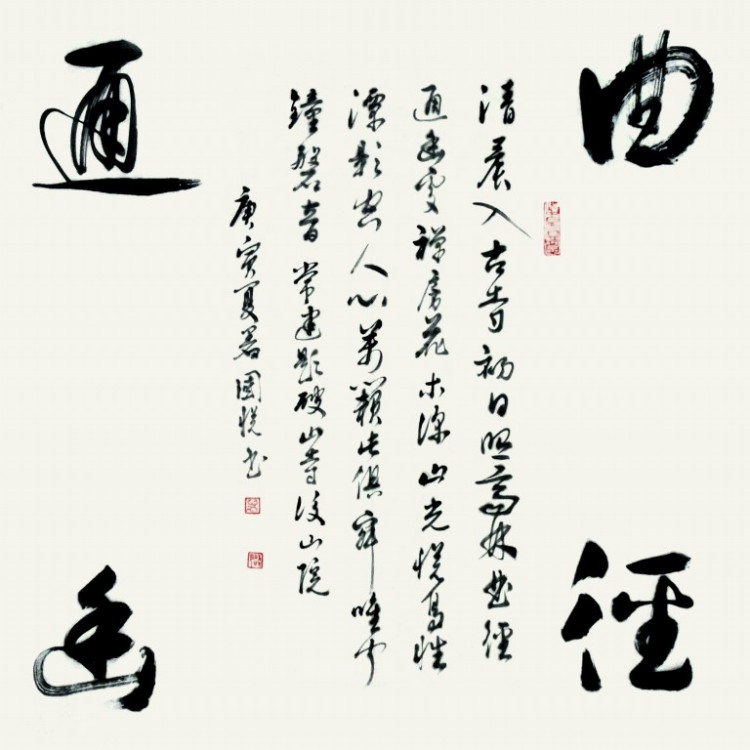 曲徑
通幽
清晨入古寺初日照高林曲徑
通幽處禪房花木深山光悅鳥性
潭影空人心萬籟此俱寂唯聞
鐘磬音常建題破山寺後山院
庚寅夏暑國悅书